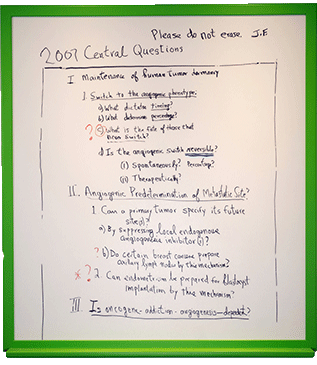 Please do not erase. J.F
2007 Central Questions
I Maintenance of human tumor dormancy
1. Switch to the angiogenic phenotype:
a) What dictates timing?
b) What determines percentage?
? c) What is the fate of those that
never switch?
d) Is the angiogenic switch reversible?
(i) Spontaneously? Percentage?
(ii) Therapeutically?
II. Angiogenic Predetermination of Metastatic Site?
1. Can a primary tumor specify its future
site(s)?
a) By suppressing local endogenous
angiogenesis inhibitor(s)?
? b) Do certain breast cancers prepare
axillary lymph nodes by this mechanism?
* ? 2. Can endometrium be prepared for blastocyst
implantation by this mechanism?
III. Is oncogene-addiction-angiogenesis-dependent?